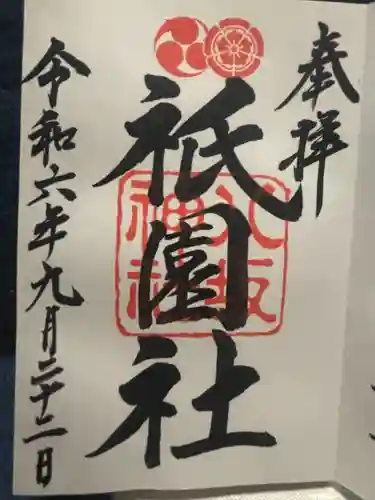 奉拝
祇園社
八坂神社
令和六年九月二十二日